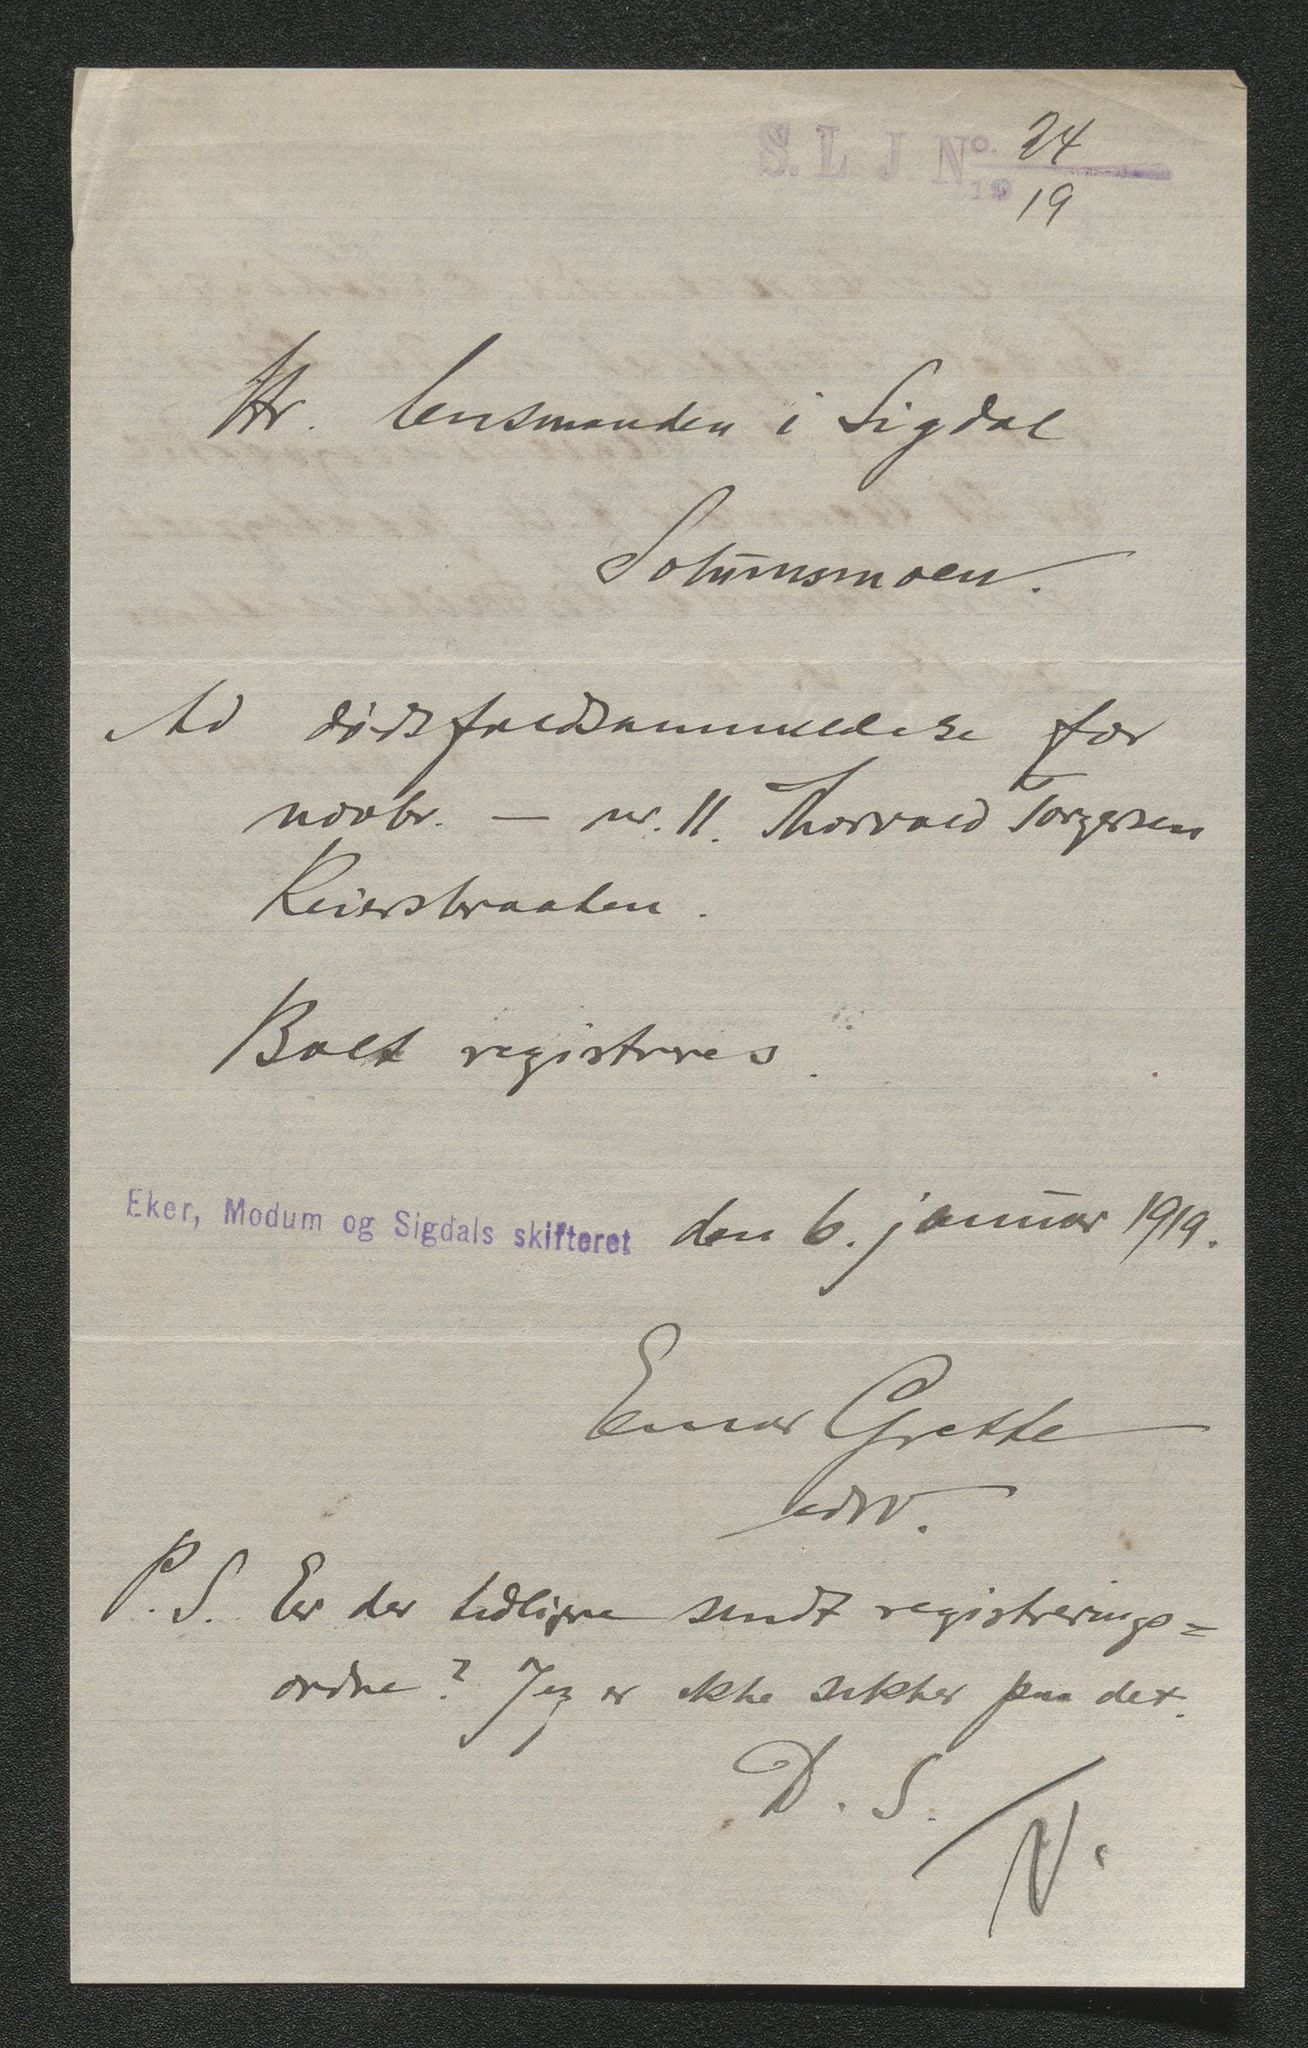 S. L J No. 24
19 19
Hr. lensmanden i Sigdal
Solumsmoen.
Ad dødsfaldsanmeldelse for
novbr. — nr. 11. Thorvald Torgersen
Reiersbraaten.
Boet registreres.
Eker, Modum og Sigdals skifteret den 6. januar 1919.
Einar Grette
edsv.
P. S. Er der tidligere sendt registrerings=
ordre? Jeg er ikke sikker paa det.
D. S.